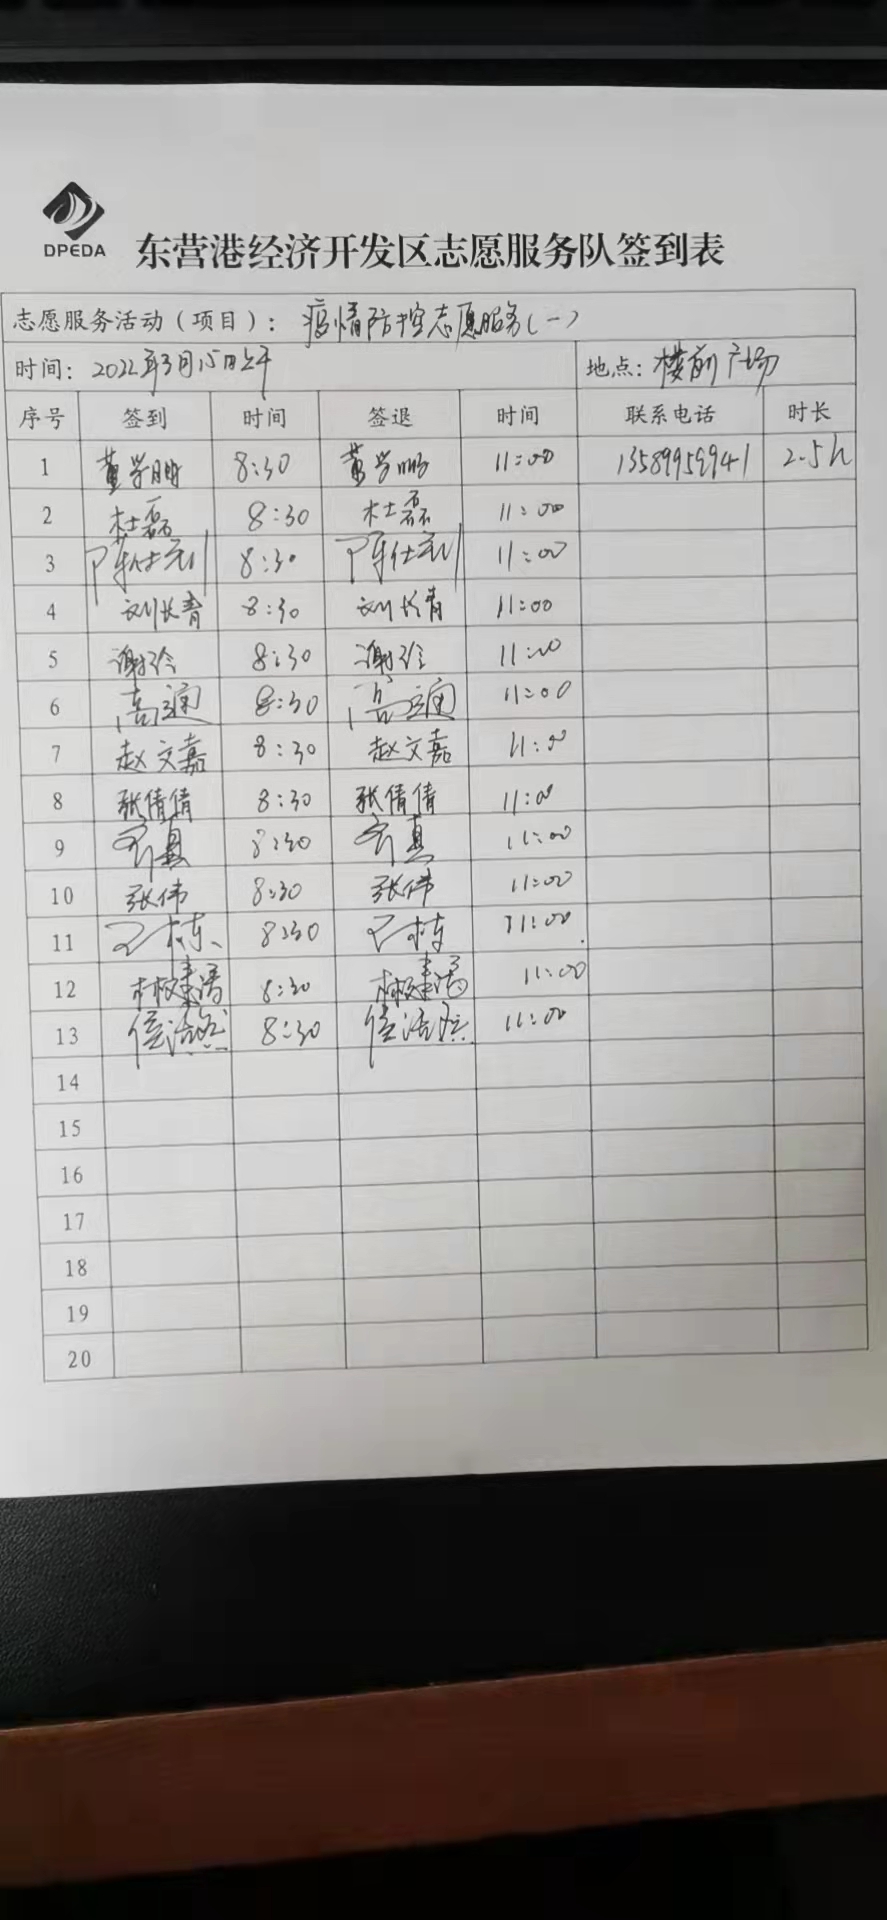 DPEDA
东营港经济开发区志愿服务队签到表
志愿服务活动（项目）： 疫情防控志愿服务（一）
时间：2022年3月15日上午 地点：楼前广场
序号 签到 时间 签退 时间 联系电话 时长
1 董学鹏 8:30 董学鹏 11:00 13589959941 2.5h
2 杜磊 8:30 杜磊 11:00
3 8:30 11:00
4 刘长青 8:30 刘长青 11:00
5 谢玲 8:30 谢玲 11:00
6 8:30 11:00
7 赵文嘉 8:30 赵文嘉 11:00
8 张倩倩 8:30 张倩倩 11:00
9 8:30 11:00
10 张伟 8:30 张伟 11:00
11 8:30 11:00
12 8:30 11:00
13 8:30 11:00
14
15
16
17
18
19
20